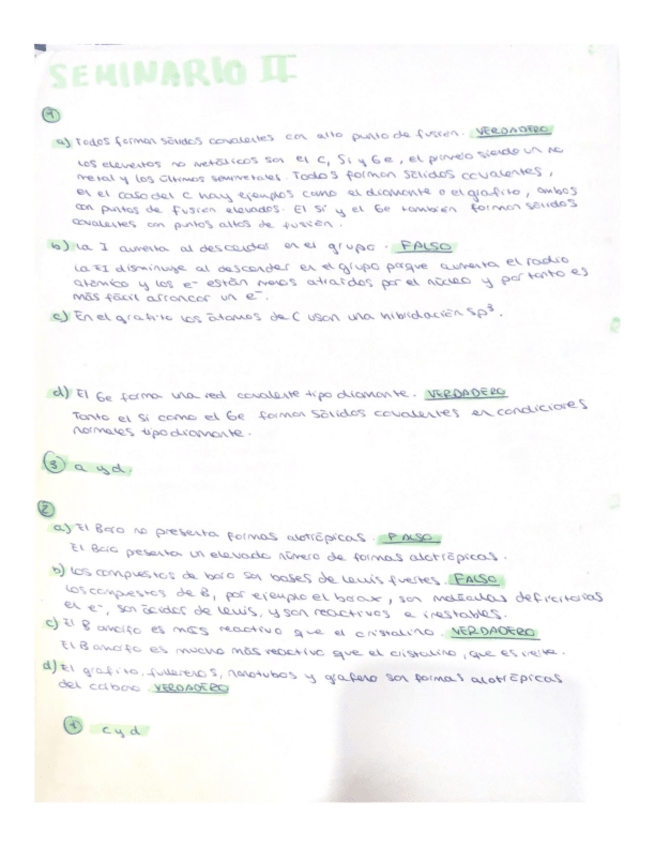 SEMINARIO II
1
a) Todos forman sólidos covalentes con alto punto de fusión. VERDADERO
Los elementos no metálicos son el C, Si y Ge, el primero siendo un no
metal y los últimos semimetales. Todos forman sólidos covalentes,
en el caso del C hay ejemplos como el diamante o el grafito, ambos
con puntos de fusión elevados. El Si y el Ge también forman sólidos
covalentes con puntos altos de fusión.
b) La I aumenta al descender en el grupo. FALSO
La EI disminuye al descender en el grupo porque aumenta el radio
atómico y los e⁻ están menos atraidos por el núcleo y por tanto es
más fácil arrancar un e⁻.
c) En el grafito los átomos de C usan una hibridación sp³.
d) El Ge forma una red covalente tipo diamante. VERDADERO
Tanto el Si como el Ge forman sólidos covalentes en condiciones
normales tipo diamante.
3 a y d.
2
a) El Boro no presenta formas alotrópicas. FALSO
El Boro presenta un elevado número de formas alotrópicas.
b) Los compuestos de boro son bases de Lewis fuertes. FALSO
Los compuestos de B, por ejemplo el borax, son moléculas deficitarias
en e⁻, son ácidos de Lewis, y son reactivos e inestables.
c) El B amorfo es más reactivo que el cristalino. VERDADERO
El B amorfo es mucho más reactivo que el cristalino, que es inerte.
d) El grafito, fullerenos, nanotubos y grafeno son formas alotrópicas
del carbono VERDADERO
c y d